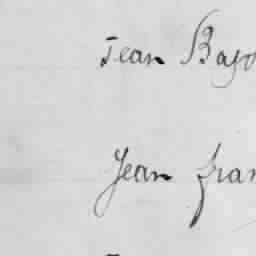 Jean Bajo
Jean fran